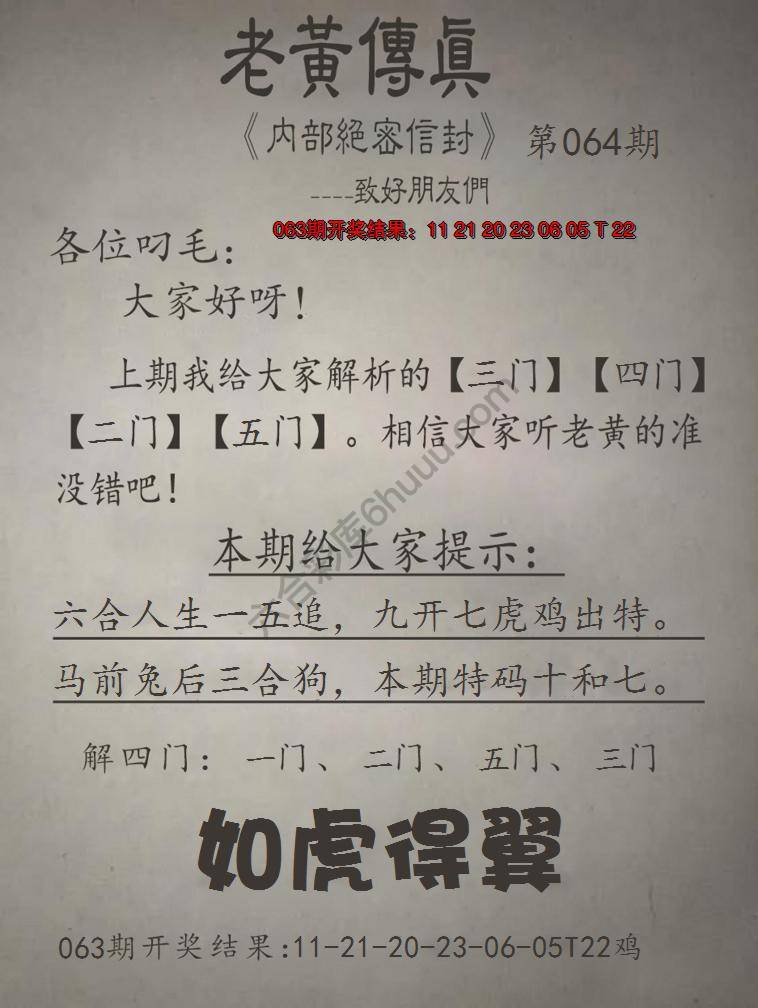 老黃傳真
《内部絕密信封》 第064期
----致好朋友們
063期开奖结果：11 21 20 23 06 05 T 22
各位叼毛：
大家好呀！
上期我给大家解析的【三门】【四门】
【二门】【五门】。相信大家听老黄的准
没错吧！
本期给大家提示：
六合人生一五追，九开七虎鸡出特。
马前兔后三合狗，本期特码十和七。
解四门： 一门、 二门、 五门、 三门
如虎得翼
063期开奖结果:11-21-20-23-06-05T22鸡
六合彩库6huuu.com